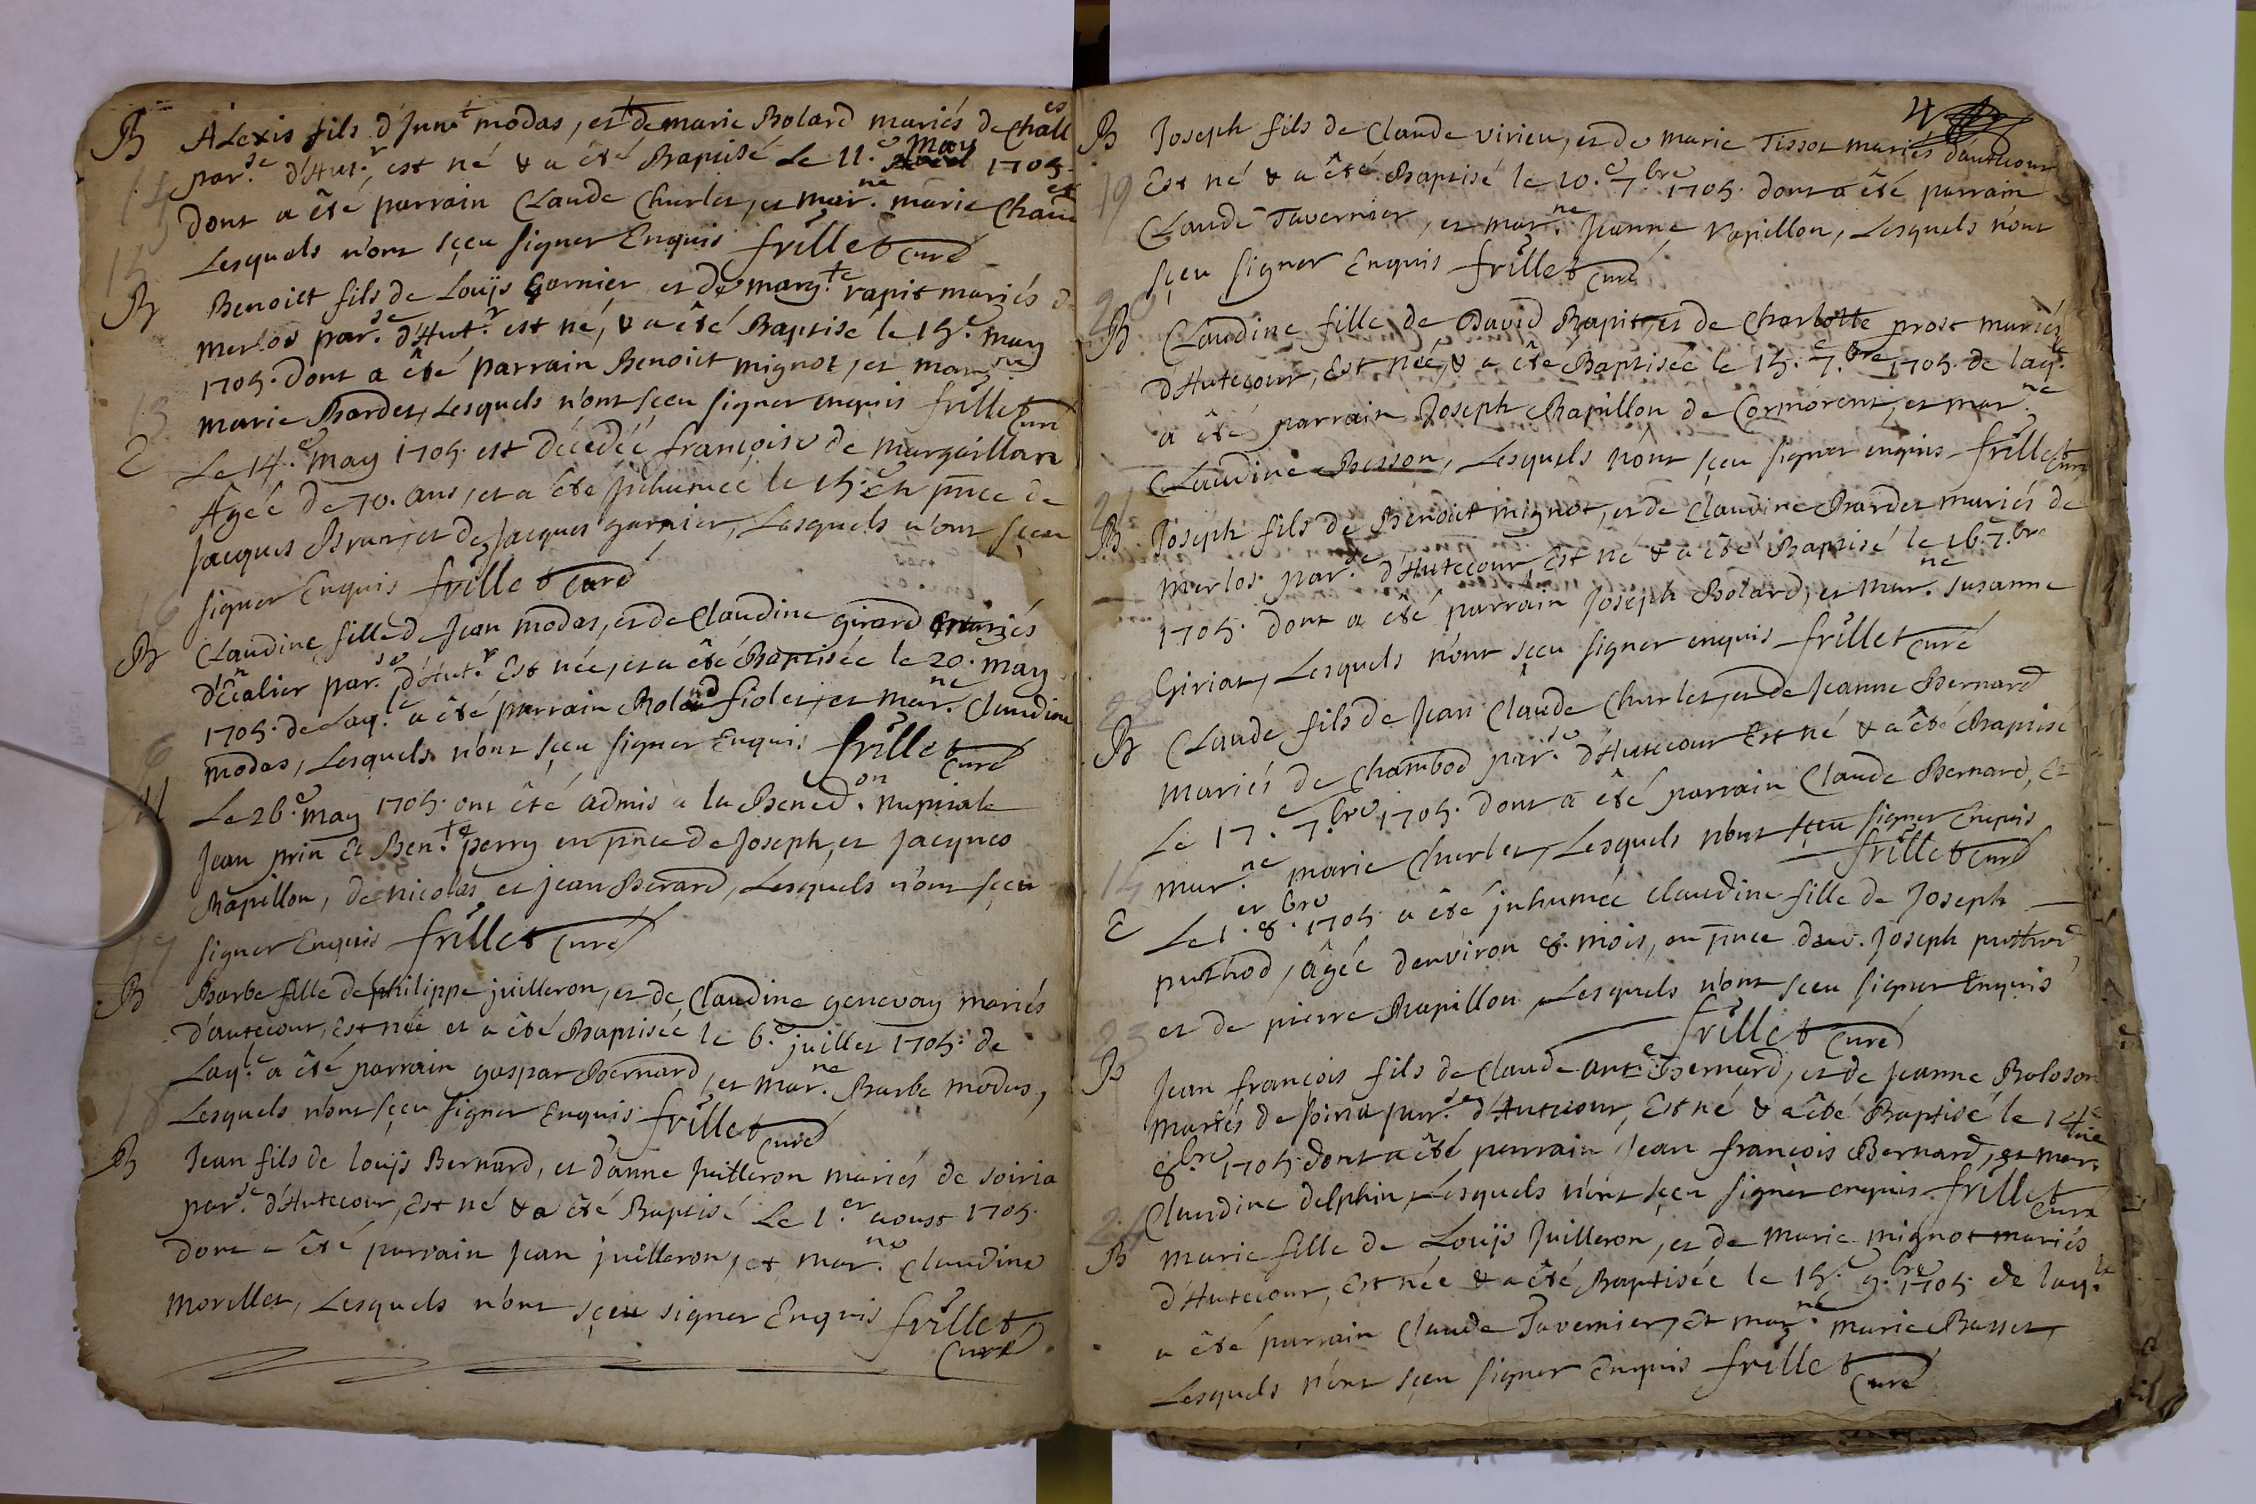 B Alexis fils d'Inn.t modas, et de marie Bolard mariés de Chall.es
par.se d'Hut.r est né & a été Baptisé Le 11.e may 1705.
dont a été parrain Claude Churlet, et mar.ne marie
Lesquels n'ont sçeu signer Enquis frillet Curé
B Benoict fils de Louijs garnier et de marg.te rapit mariés
merlos par.se d'Hut.r est né, & a été Baptisé le 15.e may
1705. dont a été parrain Benoict mignot, et mar.ne
marie Bardet, Lesquels n'ont sçeu signer enquis frillet Curé
E Le 14.e may 1705. est décédée françoise de
Âgée de 70. ans, et a été Inhumée le 15.e En pnce de
Jacques Brun, et de Jacques garnier, Lesquels n'ont sçeu
signer Enquis frillet Curé
B Claudine fille de Jean modas, et de Claudine girard mariés
par.se d'Hut.r Est née, et a été Baptisée le 20.e may
1705. de Laq.le a été parrain Roland fiolet, et mar.ne Claudine
modas, Lesquels n'ont sçeu signer Enquis frillet Curé
M Le 26.e may 1705. ont été admis a la Bened.on nupciale
Jean prin Et Ben.te perry en pnce de Joseph, et Jacques
Rapillon, de nicolas et jean Berard, Lesquels n'ont sçeu
signer Enquis frillet Curé
B Barbe fille de philippe juilleron, et de Claudine genevay mariés
d'autecour, Est née et a été Baptisée le 6.e juillet 1705. de
Laq.le a été parrain gaspar Bernard, et mar.ne Barbe modas,
Lesquels n'ont sçeu signer Enquis frillet Curé
B Jean fils de louijs Bernard, et d'anne Juilleron mariés de soiria
par.se d'Hutecour, Est né & a été Baptisé Le 1.er aoust 1705.
dont a été parrain Jean juilleron, et mar.ne Claudine
morellet, Lesquels n'ont sçeu signer Enquis frillet
Curé
B Joseph fils de Claude virieu, et de marie Tissot mariés d'autecour
19 Est né & a été Baptisé le 10.e 7.bre 1705. dont a été parrain
Claude Tavernier, et mar.ne Jeanne rapillon, Lesquels n'ont
sçeu signer Enquis frillet Curé
B Claudine fille de David Rapit, et de Charlotte prost mariés
d'Hutecour, Est née, & a été Baptisée le 15.e 7.bre 1705. de laq.le
a été parrain Joseph Rapillon de Cormorent, et mar.ne
Claudine Besson, Lesquels n'ont sçeu signer enquis frillet Curé
21
B Joseph fils de Benoict mignot, et de Claudine Bardet mariés de
merlos par.se d'Hutecour, Est né & a été Baptisé le 16. 7.bre
1705. dont a été parrain Joseph Bolard, et mar.ne susanne
Giriat, Lesquels n'ont sçeu signer enquis frillet Curé
22
B Claude fils de Jean Claude Churlet, et de Jeanne Bernard
mariés de Chambod par.se d'Hutecour Est né & a été Baptisé
Le 17.e 7.bre 1705. dont a été parrain Claude Bernard, Et
mar.ne marie Churlet, Lesquels n'ont sçeu signer Enquis
frillet Curé
E Le 1.er 8.bre 1705. a été inhumée claudine fille de Joseph
puthod, âgée d'environ 8. mois, en pnce dud. Joseph puthod,
et de pierre Rapillon, Lesquels n'ont sçeu signer Enquis
23 frillet Curé
B Jean françois fils de Claude ant.e Bernard, et de Jeanne Boloson
mariés de soiria par.se d'Hutecour, Est né & a été Baptisé le 14.e
8.bre 1705. dont a été parrain Jean françois Bernard, et mar.ne
Claudine delphin, Lesquels n'ont sçeu signer enquis frillet Curé
B marie fille de Louijs Juilleron, et de marie mignot mariés
d'Hutecour, Est née & a été Baptisée le 15.e 9.bre 1705. de laq.le
a été parrain Claude Tavernier, Et mar.ne marie Basset,
Lesquels n'ont sçeu signer Enquis frillet Curé